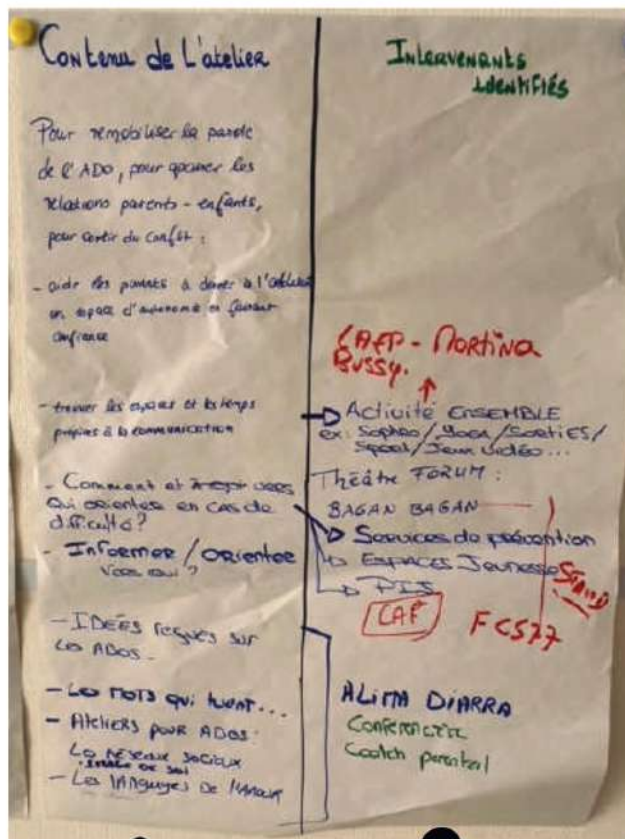 Contenu de L'atelier
Pour remobiliser la parole
de l'ADO, pour apaiser les
relations parents - enfants,
pour sortir du conflit :
- aide les parents à donner à l'adolescent
un espace d'autonomie en faisant
confiance
- trouver les espaces et les temps
propices à la communication
- Comment et vers
qui orienter en cas de
difficulté ?
- Informer / orienter
vers qui ?
- IDÉES reçues sur
les ADOS.
- Les MOTS qui tuent...
- Ateliers pour ADOS :
Les réseaux sociaux
image de soi
- Les languges de l'amour
Intervenants
identifiés
LAEP - Martina
Bussy.
Activité ENSEMBLE
ex : Sophro / Yoga / SORTIES /
Sport / Jeux vidéo ...
Théâtre FORUM :
BAGAN BAGAN
Services de prévention
Espaces Jeunesse
PIJ
CAF
FCS77
ALIMA DIARRA
Conférencière
Coatch parental